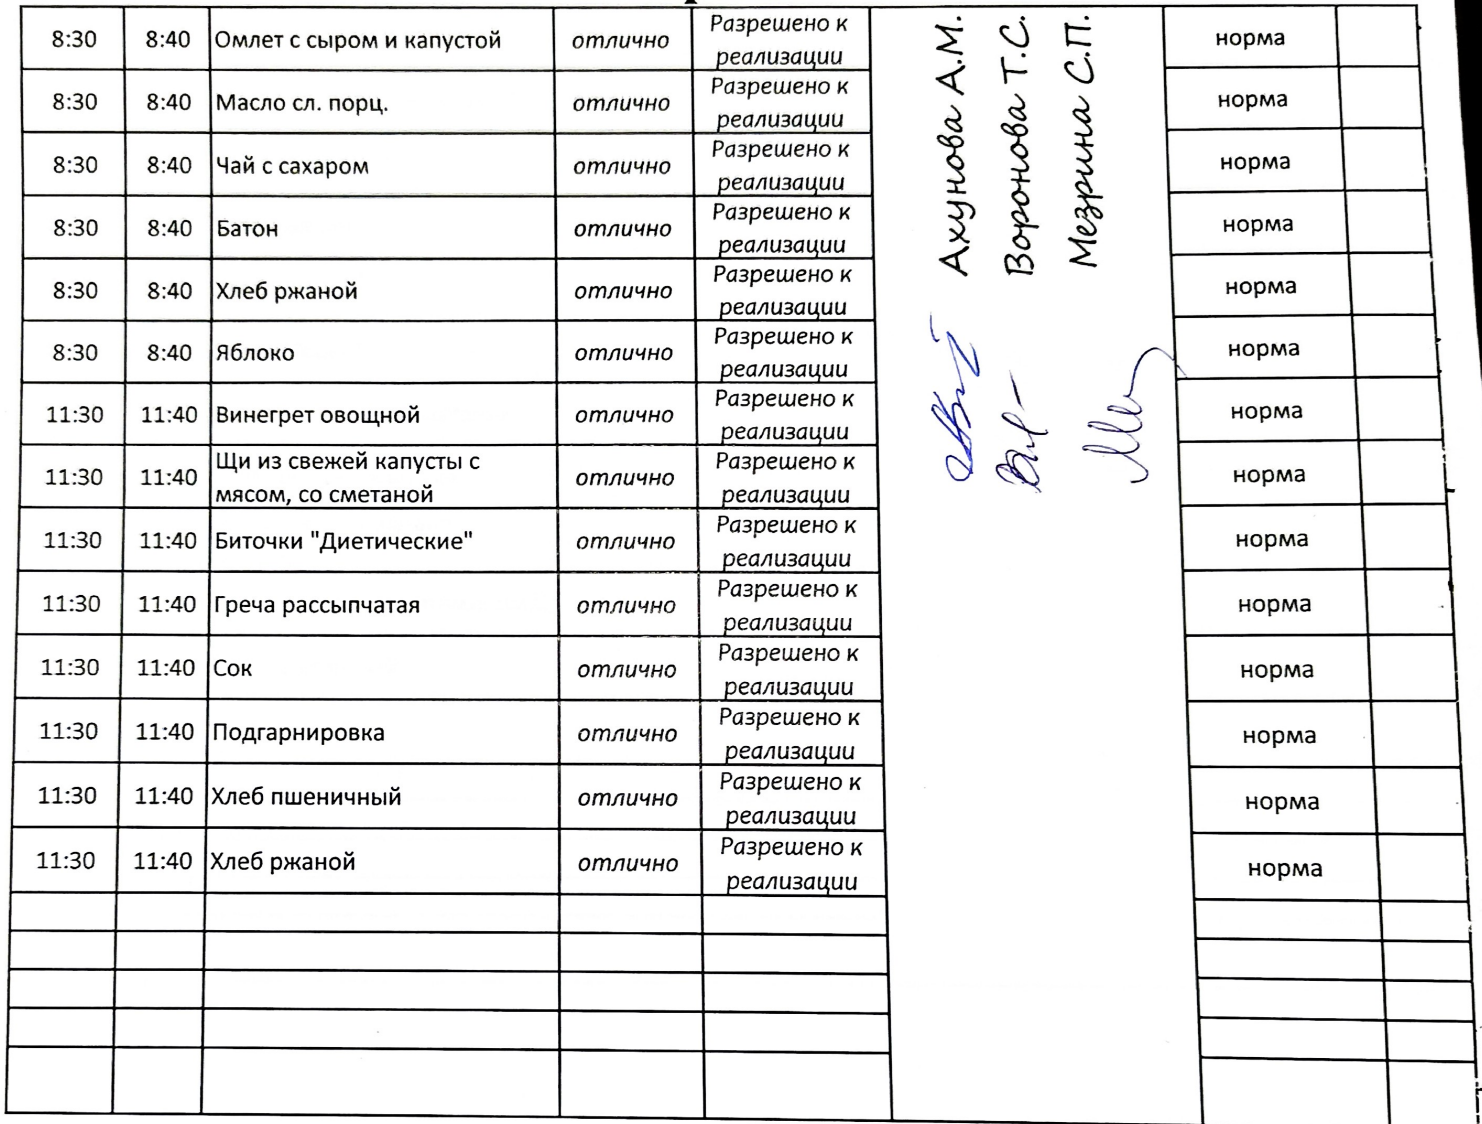 8:30 8:40 Омлет с сыром и капустой отлично Разрешено к реализации норма
8:30 8:40 Масло сл. порц. отлично Разрешено к реализации норма
8:30 8:40 Чай с сахаром отлично Разрешено к реализации норма
8:30 8:40 Батон отлично Разрешено к реализации норма
8:30 8:40 Хлеб ржаной отлично Разрешено к реализации норма
8:30 8:40 Яблоко отлично Разрешено к реализации норма
11:30 11:40 Винегрет овощной отлично Разрешено к реализации норма
11:30 11:40 Щи из свежей капусты с мясом, со сметаной отлично Разрешено к реализации норма
11:30 11:40 Биточки "Диетические" отлично Разрешено к реализации норма
11:30 11:40 Греча рассыпчатая отлично Разрешено к реализации норма
11:30 11:40 Сок отлично Разрешено к реализации норма
11:30 11:40 Подгарнировка отлично Разрешено к реализации норма
11:30 11:40 Хлеб пшеничный отлично Разрешено к реализации норма
11:30 11:40 Хлеб ржаной отлично Разрешено к реализации норма
Ахунова А.М.
Воронова Т.С.
Мезрина С.П.